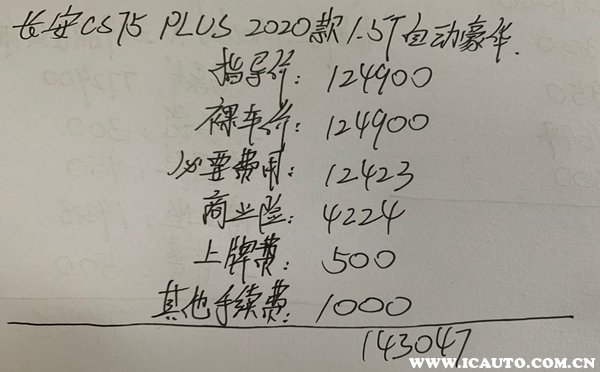 长安CS75 PLUS 2020款1.5T自动豪华.
指导价: 124900
裸车价: 124900
必要费用: 12423
商业险: 4224
上牌费: 500
其他手续费: 1000
143047
WWW.ICAUTO.COM.CN